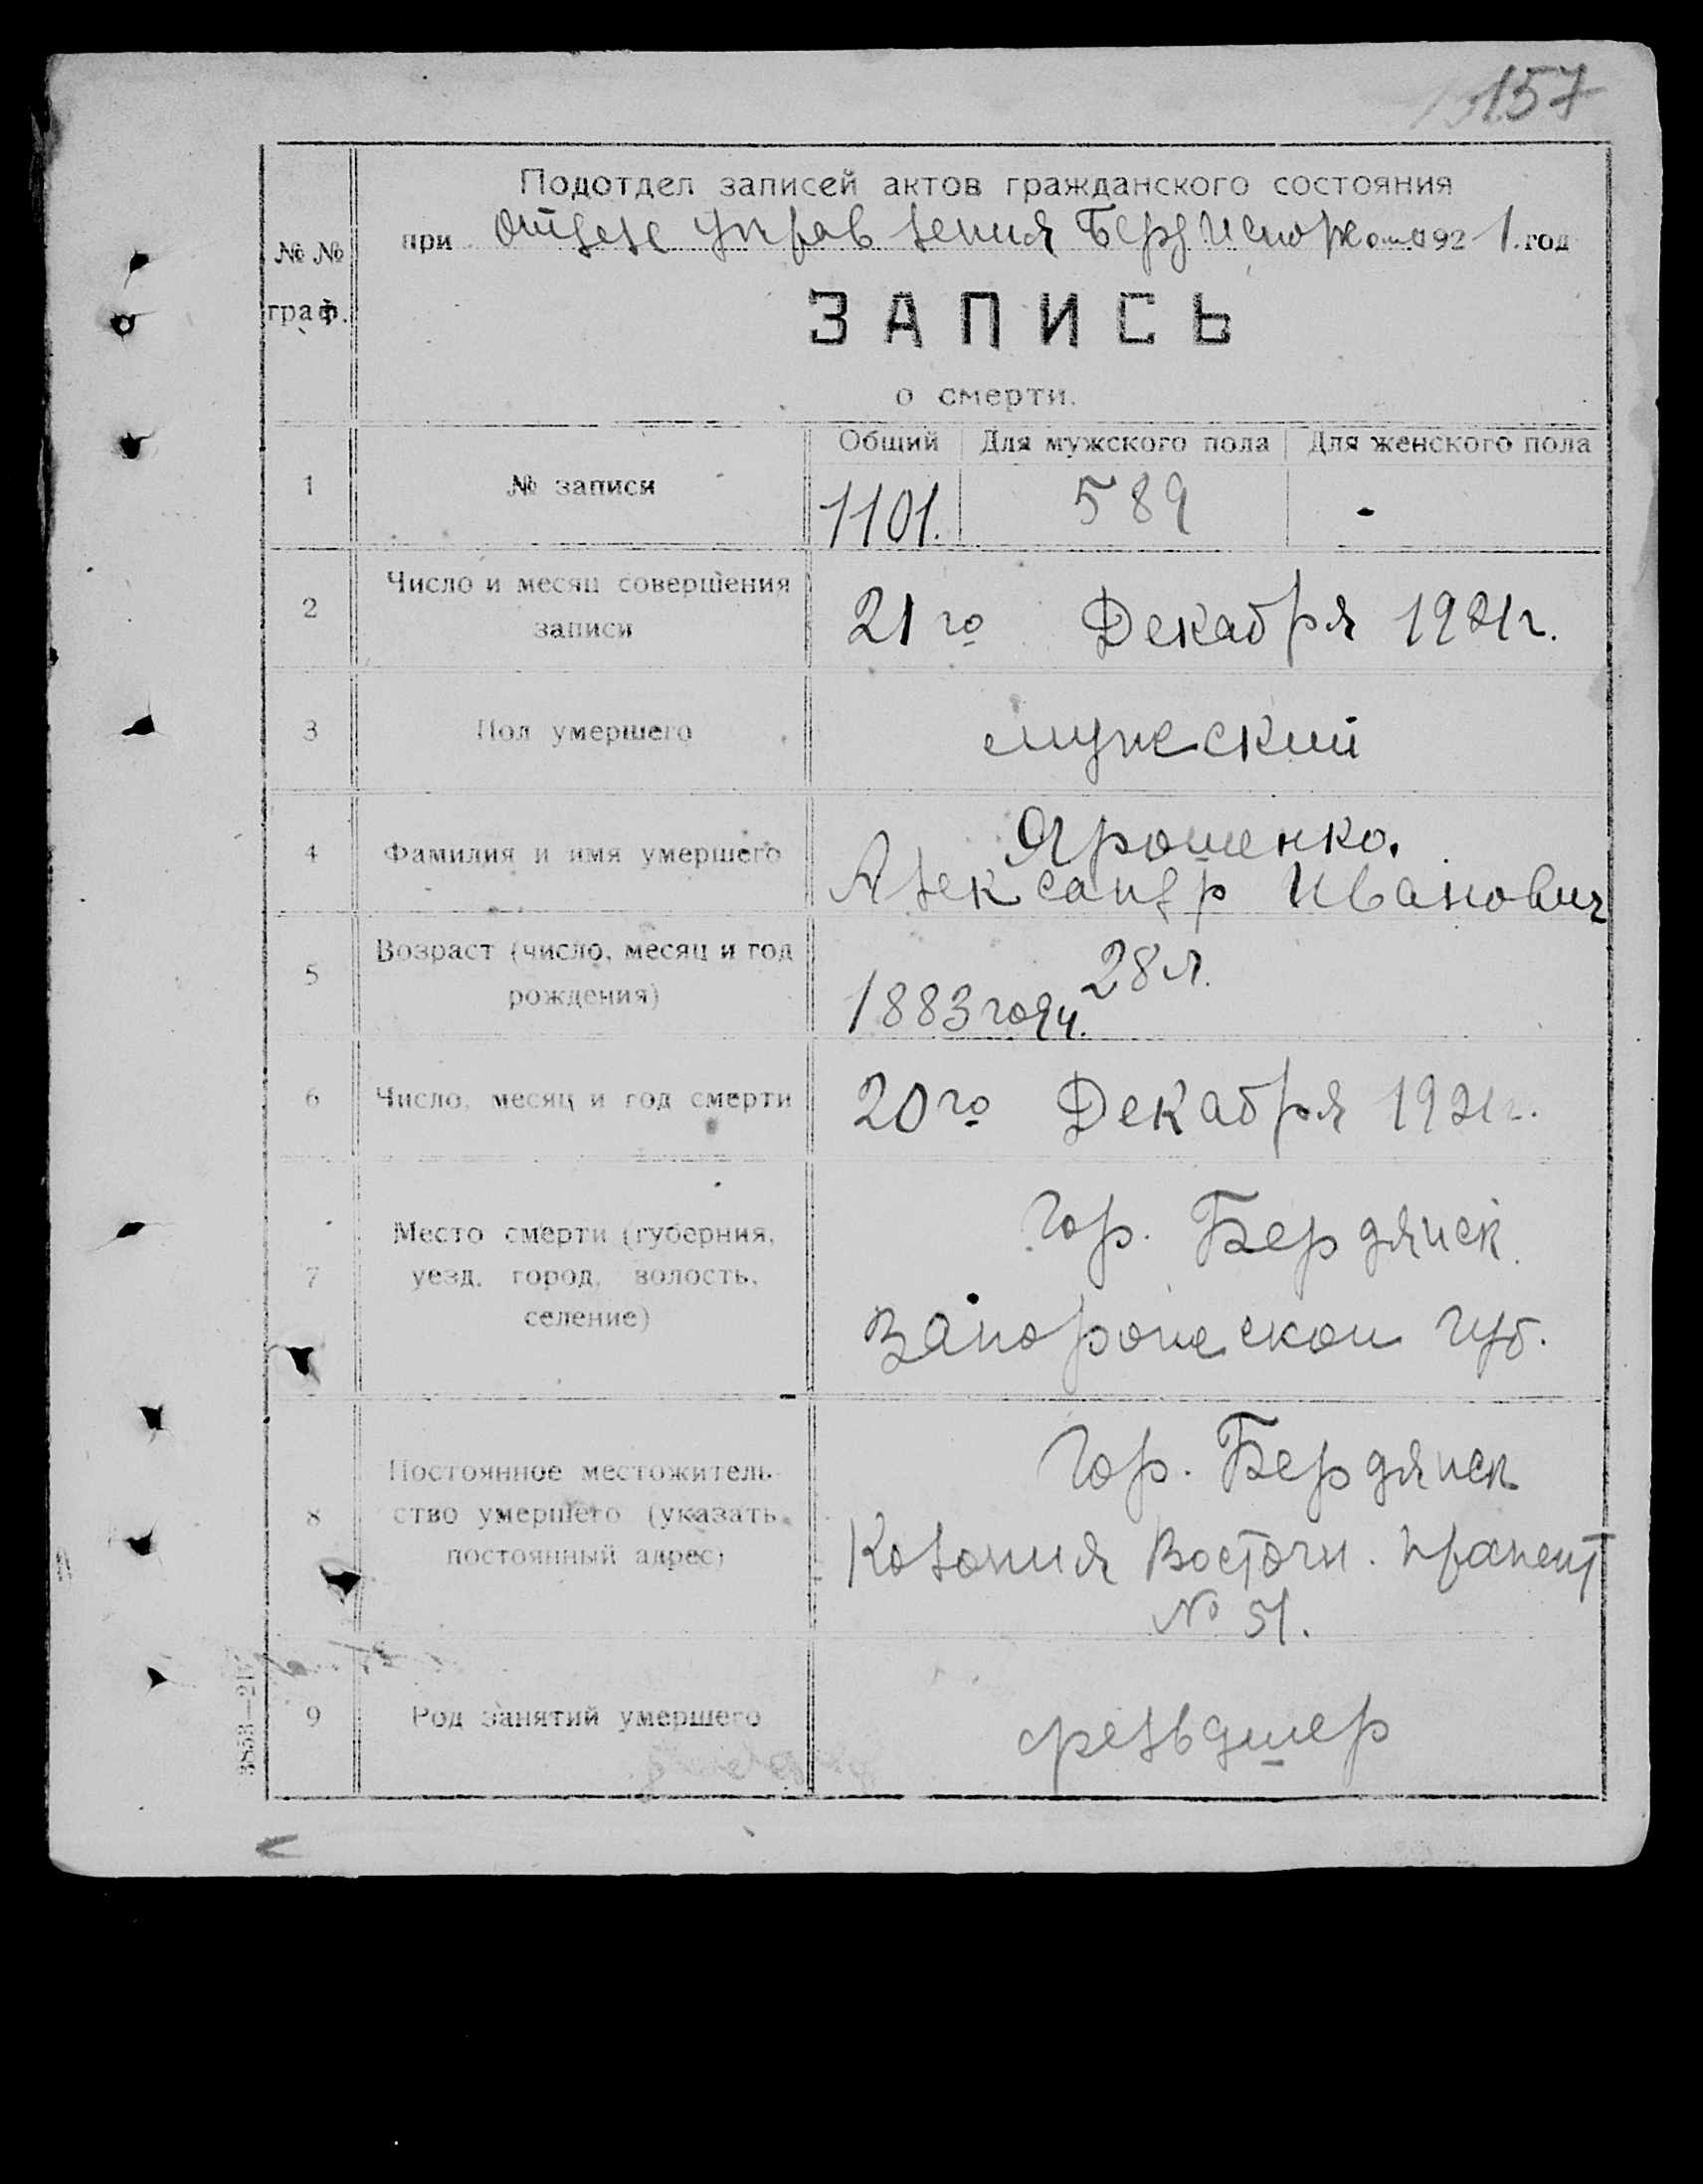 157
Подотдел записей актов гражданского состояния
при Отделе Управления БердИсполкома 1921 год
№ №
граф.
ЗАПИСЬ
о смерти.
Общий Для мужского пола Для женского пола
1 № записи 1101. 589 -
2 Число и месяц совершения
записи
21го Декабря 1921г.
3 Пол умершего мужеский
4 Фамилия и имя умершего
Ярошенко.
Александр Иванович
5 Возраст (число, месяц и год
рождения)
28 л.
1883 году.
6 Число, месяц и год смерти 20го Декабря 1921г.
7 Место смерти (губерния,
уезд, город, волость,
селение)
Гор. Бердянск.
Запорожской Губ.
8 Постоянное местожитель-
ство умершего (указать
постоянный адрес)
Гор. Бердянск
Колония Восточн. Прспект
№ 51.
9 Род занятий умершего фельдшер